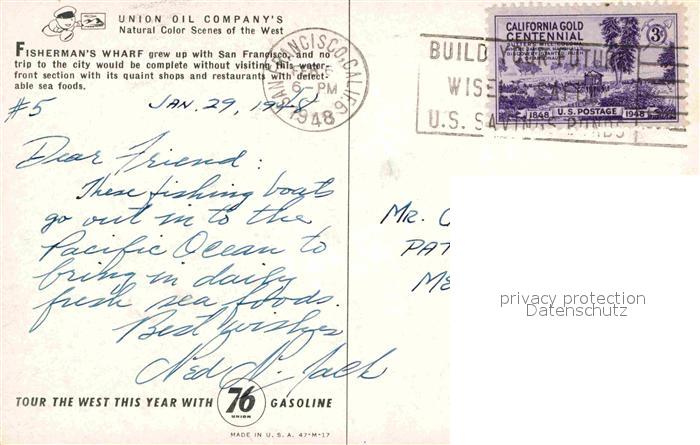 UNION OIL COMPANY'S
Natural Color Scenes of the West
FISHERMAN'S WHARF grew up with San Francisco, and no
trip to the city would be complete without visiting this water-
front section with its quaint shops and restaurants with delect-
able sea foods.
#5 JAN. 29, 1948
Dear Friend:
These fishing boats
go out in to the
Pacific Ocean to
bring in daily
fresh sea foods.
Best wishes
Ned N. Jack
TOUR THE WEST THIS YEAR WITH 76 GASOLINE
UNION
MADE IN U.S.A. 47-M-17
SAN FRANCISCO, CALIF.
6-PM
1948
BUILD YOUR FUTURE
WISELY SAFELY
U.S. SAVINGS BONDS
CALIFORNIA GOLD
CENTENNIAL
3¢
1848 U.S. POSTAGE 1948
MR.
PAT
ME
privacy protection
Datenschutz